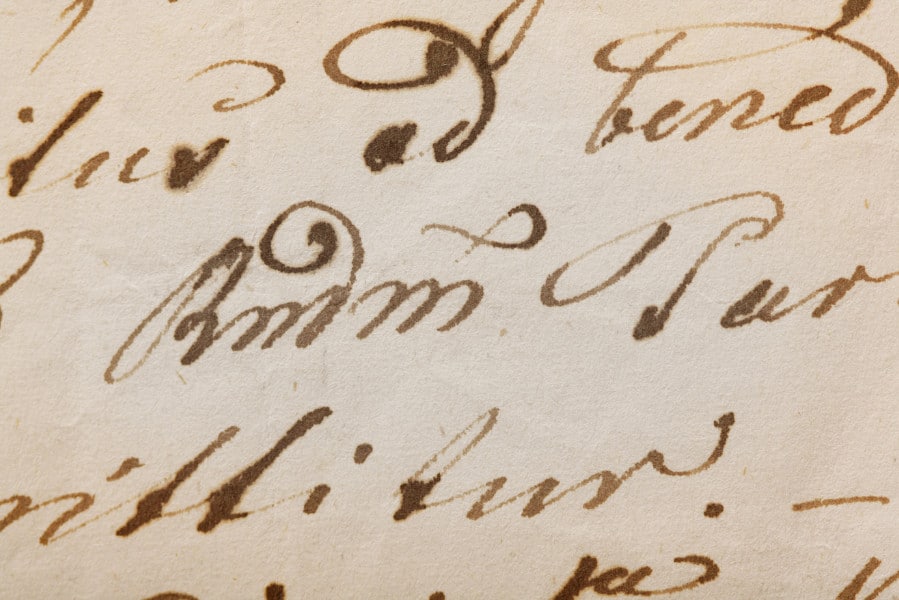 itur ad bened
Rndm Par
rittitur. –